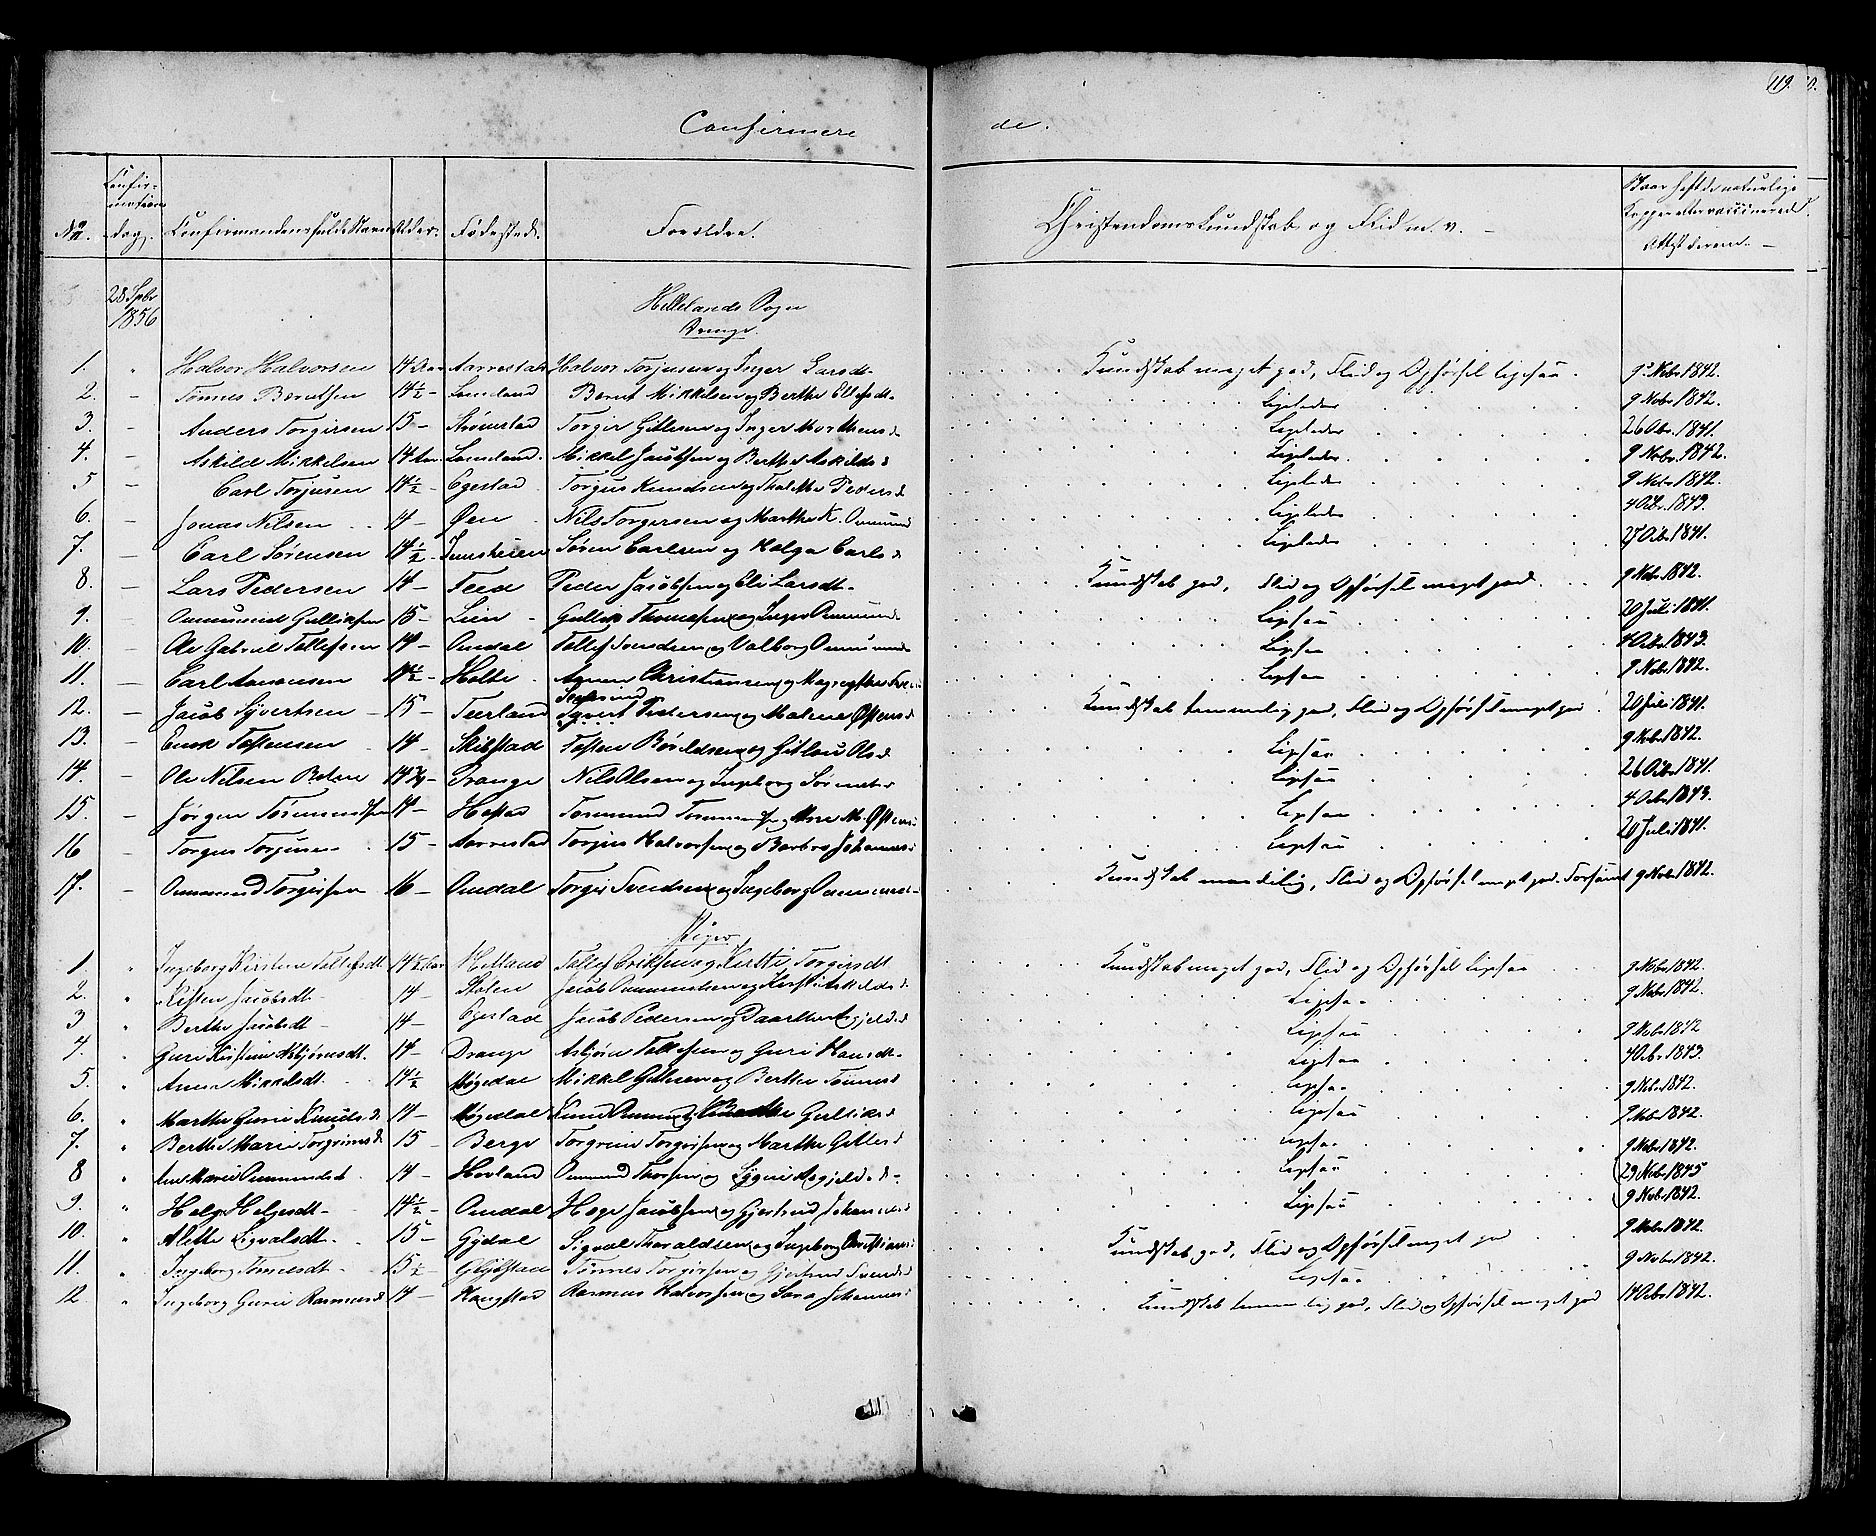 119.
Confirmere de.
No. Confirmations dag. Confirmandens fulde Navn Alder. Fødested. Forældre. Christendoms Kundskab og Flid m. v. Hvor havt de naturlige Kopper eller vaccinerede. Attest derom.
28 Spbr 1856
Hellelands Sogn
Drenge.
1. Halvor Halvorsen 14 Aar Aarrestad Halvor Torjusen og Inger Larsdt. Kundskab meget god, Flid og Opførsel ligesaa. 9 Nobr 1842.
2. Tønnes Berntsen 14½ Lomeland Bernt Mikkelsen og Berthe Ellefsdt. Ligeledes 9 Nobr 1842.
3. Anders Torgersen 15 Strømstad Torger Gitlesen og Inger Ligeledes 26 Obr. 1841.
4. Askild Mikkelsen 14 Aar Lomeland Mikkel Jacobsen og Berthe Askildsd Ligeledes 9 Nobr. 1842.
5 Carl Torjusen 14½ Egestad Torgus Knudsen og Pedersd Ligeledes 9 Nobr 1842.
6. Jonas Nilsen 14 Øen Nils Torgersen og Marthe K. Ommund Ligeledes 4 Obr. 1843.
7. Carl Sørensen 14½ Søren Carlsen og Helga Carlsd Ligeledes 27 Obr 1841.
8. Lars Pedersen 14 Feed Peder Jacobsen og Eli Larsdt. Kundskab god, Flid og Opførsel meget god. 9 Nobr 1842.
9. Ommund Gulliksen 15 Lien Gullik Thomesen og Inger Ommunds Ligesaa 20 Juli 1841.
10. Ole Gabriel Tollefsen 14 Omdal Tollef Svendsen og Valborg Ommunds Ligesaa 4 Octbr. 1843.
11. Carl Aanensen 14½ Holte Aanen Christiansen og Ligesaa 9 Nobr. 1842.
12. Jacob Syvertsen 15 Terland Syvert Pedersen og Malene Østensd Kundskab temmelig god, Flid og Opførsel meget god 20 Juli 1841.
13. Enok Tostensen 14 Skibstad Tosten Bårdsen og Gitlau Olsd. Ligesaa 9 Nobr. 1842.
14. Ole Nilsen 14¾ Drange Nils Olsen og Ingeborg Ligesaa 26 Obr 1841.
15. Jørgen Tormundsen 14 Hestad Tormund og Ane M. Østensd Ligesaa 4 Obr 1843.
16 Torgus Torjusen 15 Aarrestad Torjus Halvorsen og Barbro Johannesd Ligesaa 20 Juli 1841.
17. Ommund Torgersen 16 Omdal Torger Svendsen og Ingeborg Ommunds Kundskab maadelig, Flid og Opførsel meget god. Forsømt 9 Nobr. 1842.
Piger
1. Ingeborg Kirstine Tollefsdt. 14½ Aar Hetland Tollef Eriksen og Kirsti Torgersdt Kundskab meget god, Flid og Opførsel Ligesaa 9 Nobr 1842.
2. Kisten Jacobsdt. 14 Stolen Jacob Ommundsen og Kirsti Askildsd Ligesaa 9 Nobr 1842.
3 Berthe Jacobsdt. 14 Egestad Jacob Pedersen og Daarthe Ligesaa 9 Nobr 1842
4. Guri Kirstine Asbjørnsdt. 14 Drange Asbjørn Tollefsen og Guri Hansdt. Ligesaa 4 Obr. 1843.
5. Anne Mikkelsdt. 14½ Møgedal Mikkel Gitlesen og Berthe Tønnesd Ligesaa 9 Nobr. 1842.
6. Marthe Gurine Knudsd 14 Møgedal Knud Ommund og Gulliksd Ligesaa 9 Nobr 1842.
7. Berthe Marie Torgrimsd. 15 Berge Torgrim Torgersen og Marthe Gitlesd Ligesaa 9 Nobr. 1842.
8 Ane Marie Ommundsdt 14 Hovland Ommund Thorsen og Ligesaa 29 Nobr. 1845
9. Helge Helgesdt. 14½ Omdal Hege Jacobsen og Gjertrud Johannesd Ligesaa 9 Nobr. 1842.
10. Alette Sigvalsdt. 15 Gydal Sigval Tharaldsen og Ingeborg Christians Kundskab god, Flid og Opførsel meget god 9 Nobr. 1842.
11. Ingeborg Tønnesdt. 15½ Gjilstad Tønnes Torgersen og Gjertrud Svendsd Ligesaa 9 Nobr. 1842.
12 Ingeborg Gurine Rasmusd 14 Haugstad Rasmus Halvorsen og Sara Johannesd Kundskab temmelig god, Flid og Opførsel meget god 14 Obr. 1842.